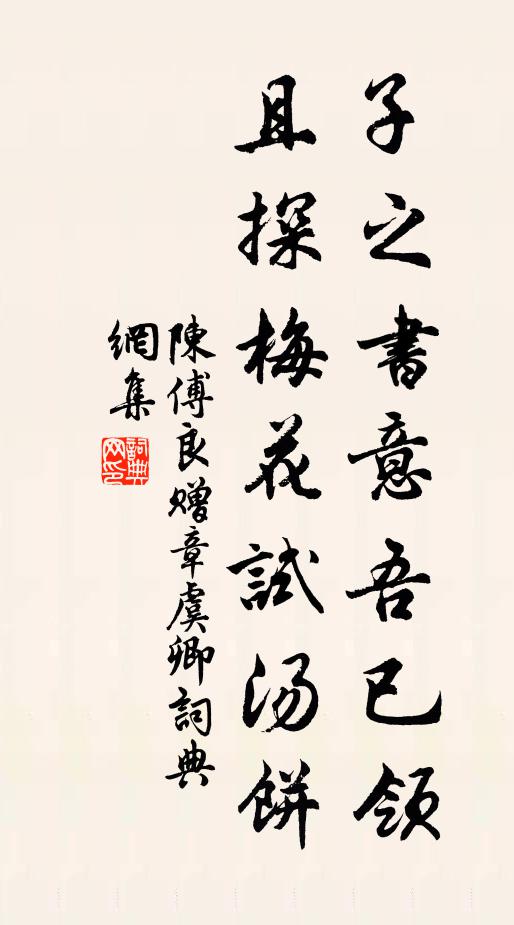 子之書意吾已領
且探梅花試汤餅
陳傅良贈章虞卿詞典
網集
詞典
网印